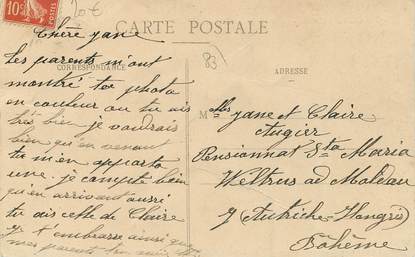 10c
20€
CARTE POSTALE
83
CORRESPONDANCE
ADRESSE
Chère Jane
Les parents m'ont
montré ta photo
en couleur ou tu ais
très bien je voudrais
bien qu'en venant
tu m'en apporta
une. je compte bien
qu'en arrivant aussi
tu ais celle de Claire
je t'embrasse ainsi que
mes parents
Melles Jane et Claire
Augier
Pensionnat Sta Maria
Weltrus ad Moldau
(Autriche-Hongrie)
Bohême